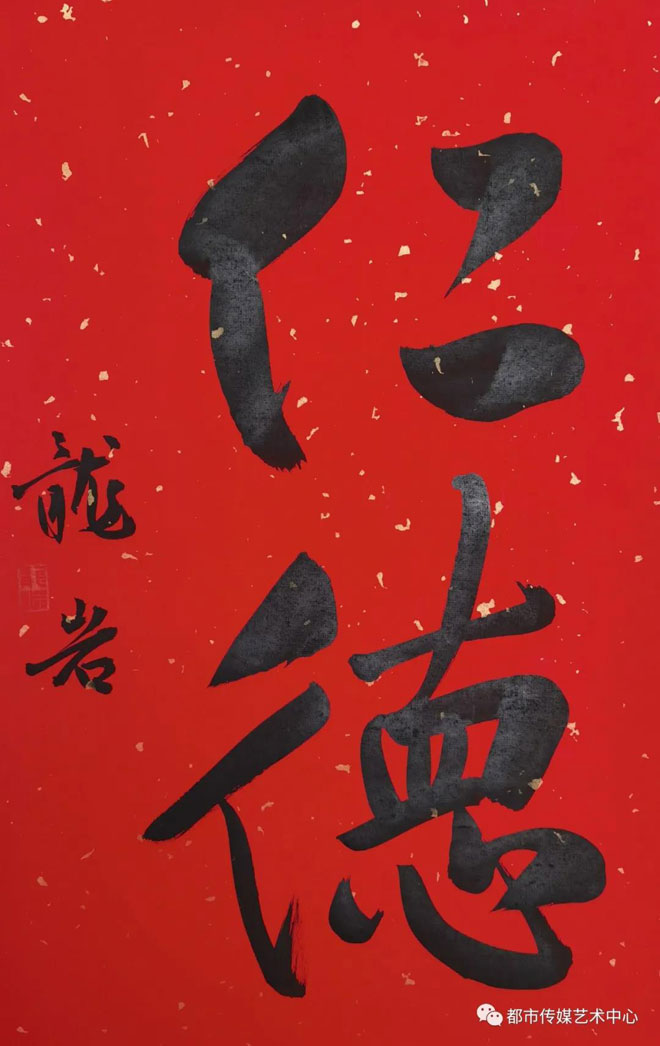 仁德
龍岩
都市传媒艺术中心